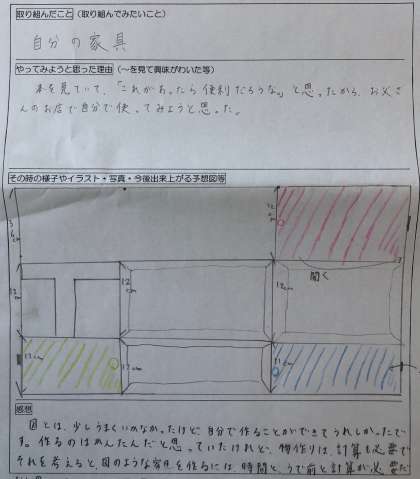 取り組んだこと（取り組んでみたいこと）
自分の家具
やってみようと思った理由（～を見て興味がわいた等）
本を見ていて、「これがあったら便利だろうな。」と思ったから、お父さ
んのお店で自分で使ってみようと思った。
その時の様子やイラスト・写真・今後出来上がる予想図等
12cm
36cm
開く
12cm
12cm
12cm
12cm
12cm
11cm
感想
図とは、少しうまくいかなかったけど、自分で作ることができてうれしかったで
す。作るのはかんたんだと思っていたけれど、物作りは、計算も必要で
それを考えると、図のような家具を作るには、時間と、うで前と計算が必要だ